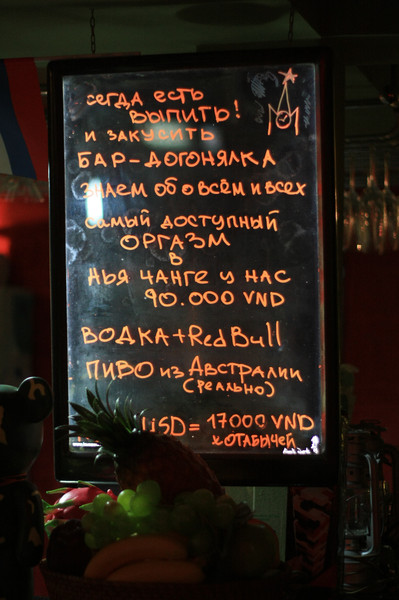 сегда есть
выпить!
и закусить
БАР-ДОГОНЯЛКА
Знаем обо всём и всех
самый доступный
ОРГАЗМ
в
НЬЯ ЧАНГЕ У НАС
90.000 VND
ВОДКА+Red Bull
ПИВО из Австралии
(реально)
1USD = 17000 VND
хотабычей